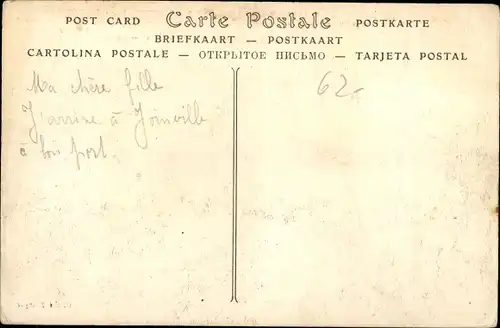 POST CARD Carte Postale POSTKARTE
BRIEFKAART — POSTKAART
CARTOLINA POSTALE — ОТКРЫТОЕ ПИСЬМО — TARJETA POSTAL
Ma chère fille
J'arrive à Joinville
à bon port.
62.-